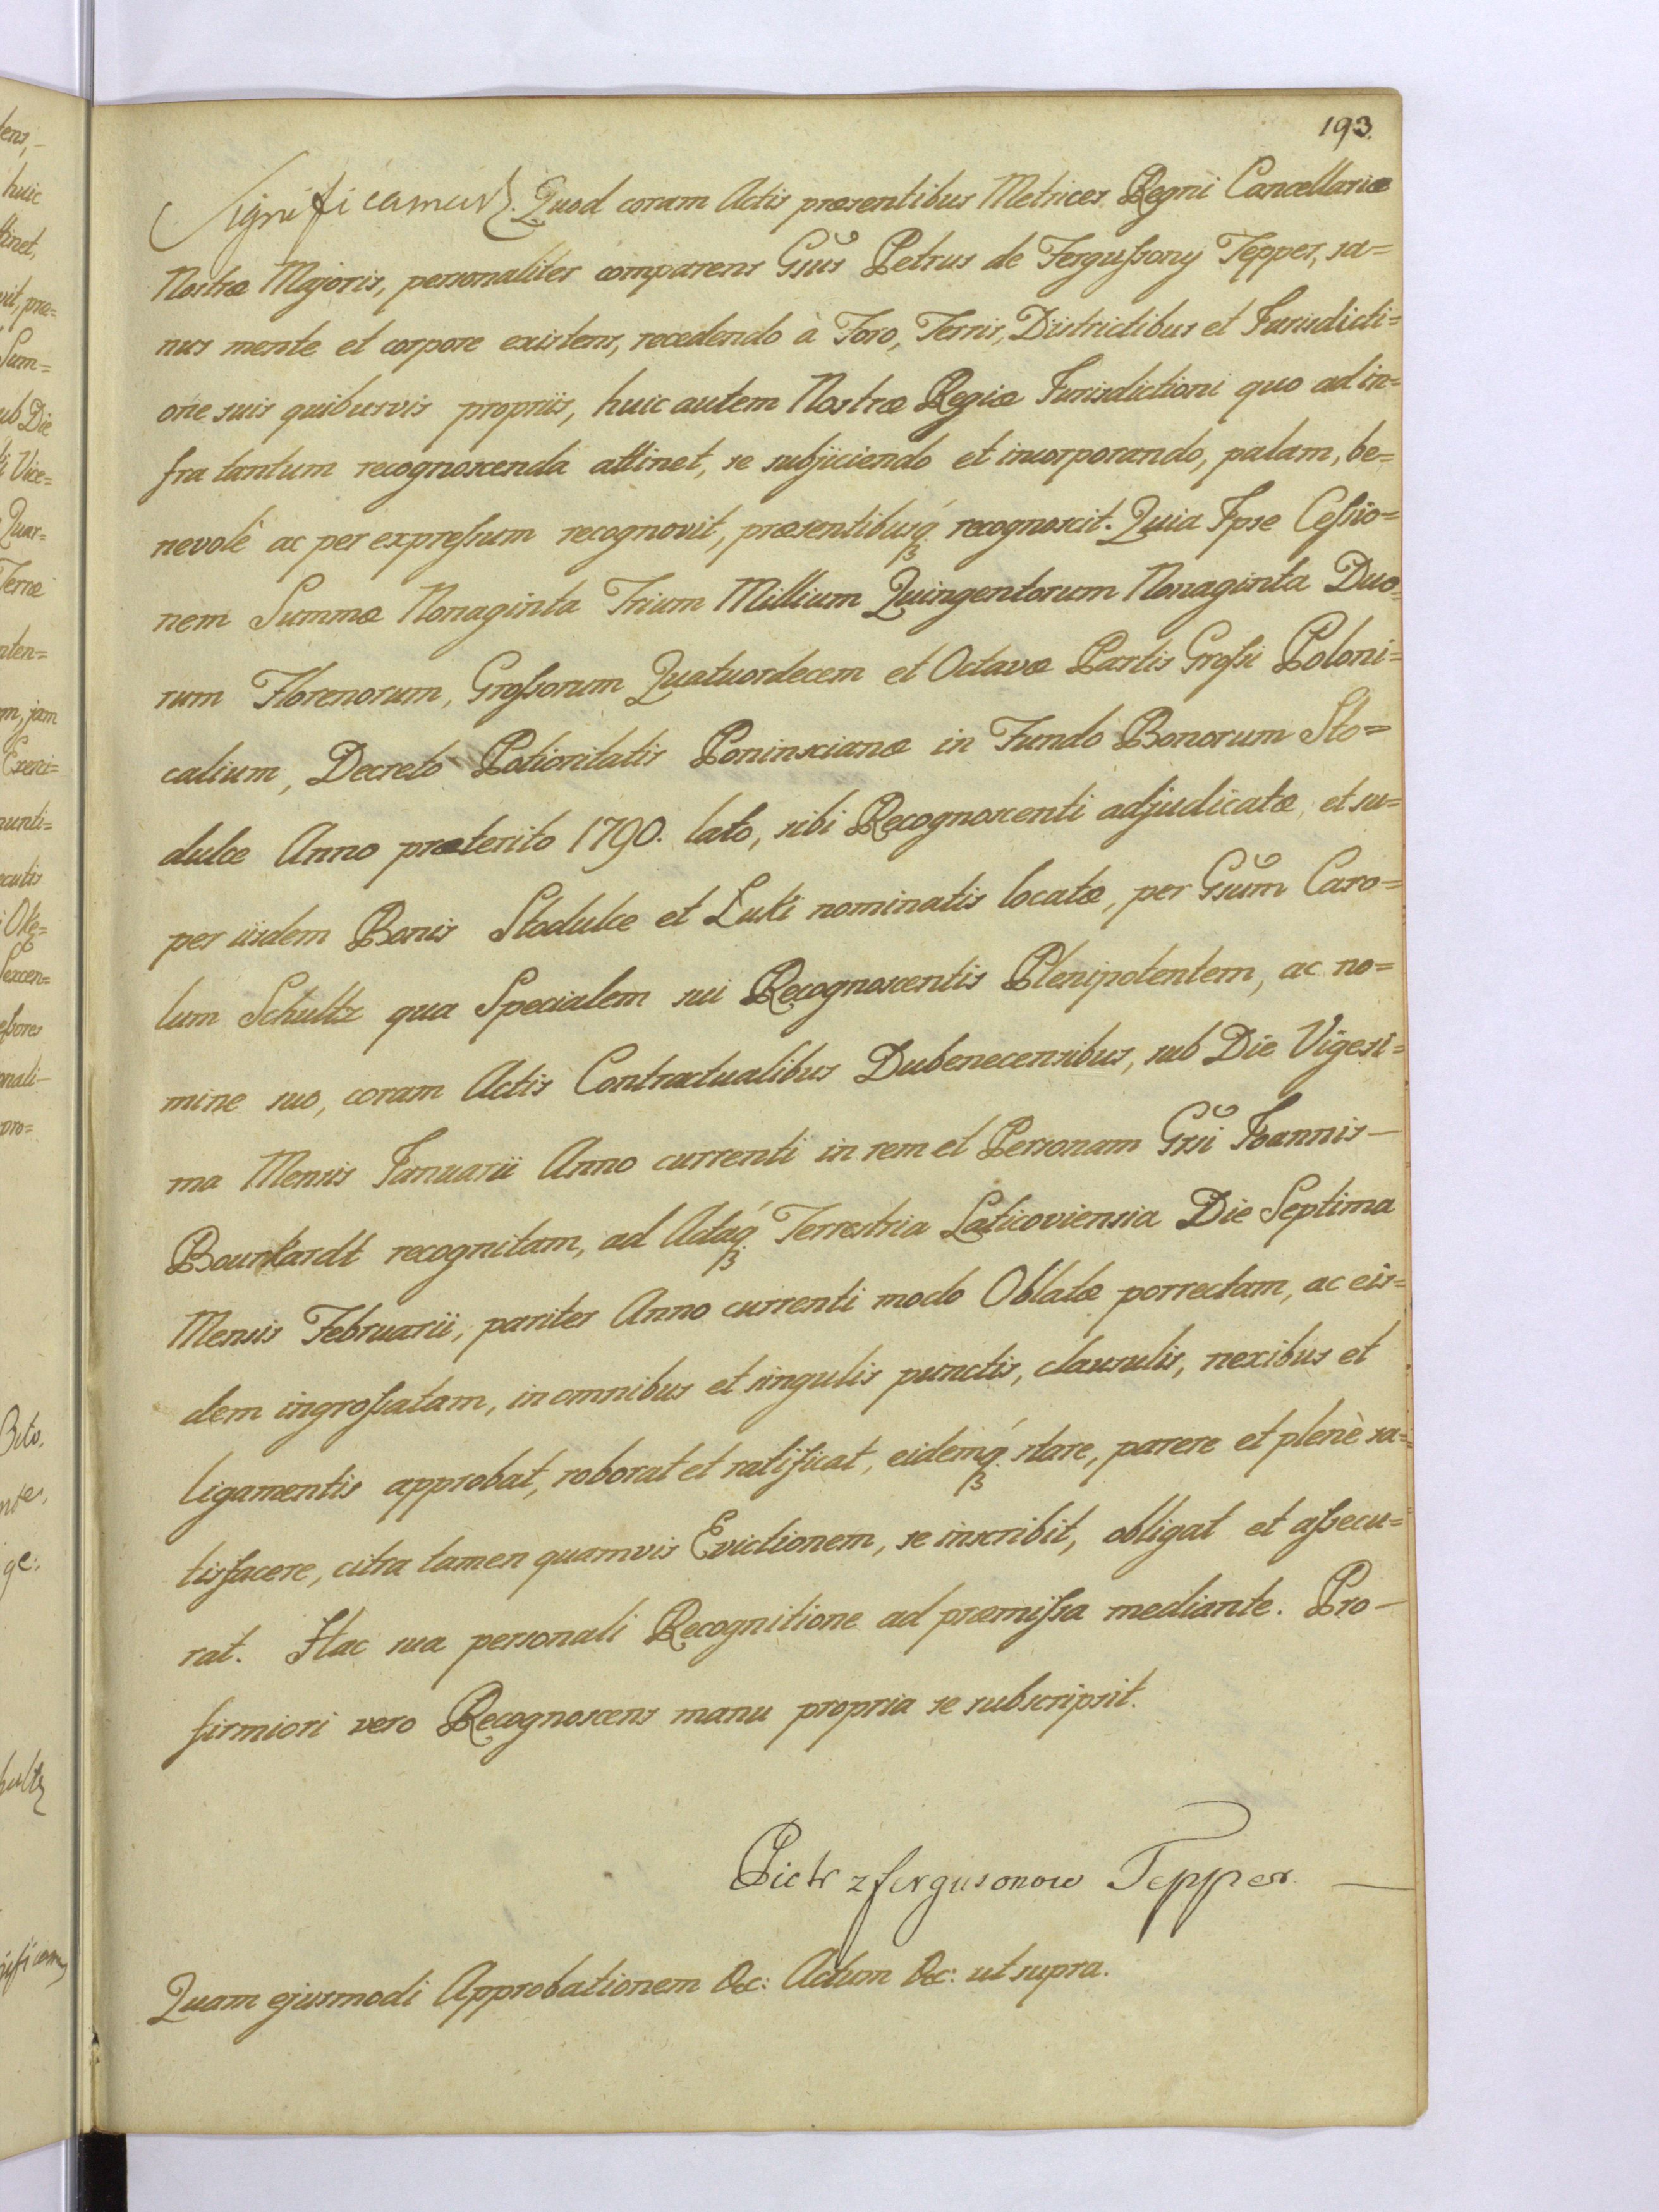 193.
Significamus. Quod coram Actis præsentibus Metrices Regni Cancellariæ
Nostræ Majoris, personaliter comparens Gsus Petrus de Fergußony Tepper, sa=
nus mente et corpore existens, recedendo à Foro, Terris, Districtibus et Jurisdicti=
one suis quibusvis propriis, huic autem Nostræ Regiæ Jurisdictioni quo ad in=
fra tantum recognoscenda attinet, se subjiciendo et incorporando, palam, be=
nevolè ac per expreßum recognovit, præsentibusq́ recognoscit. Quia Ipse Ceßio=
nem Summæ Nonaginta Trium Millium Quingentorum Nonaginta Duo=
rum Florenorum, Großorum Quatuordecem et Octavæ Partis Großi Poloni=
calium, Decreto Potioritatis Poninscianæ in Fundo Bonorum Sto=
dulce Anno præterito 1790. lato, sibi Recognoscenti adjudicatæ, et su=
per iisdem Bonis Stodulce et Łuki nominatis locatæ, per Gsum Caro=
lum Schultz qua Specialem sui Recognoscentis Plenipotentem, ac no=
mine suo, coram Actis Contractualibus Dubenecensibus, sub Die Vigesi=
ma Mensis Januarii Anno currenti in rem et Personam Gsi Joannis —
Bourkardt recognitam, ad Actaq́ Terrestria Laticoviensia Die Septima
Mensis Februarii, pariter Anno currenti modo Oblatæ porrectam, ac eis=
dem ingroßatam, in omnibus et singulis punctis, clausulis, nexibus et
ligamentis approbat, roborat et ratificat, eidemq́ stare, parere et plenè sa=
tisfacere, citra tamen quamvis Evictionem, se inscribit, obligat et aßecu=
rat. Hac sua personali Recognitione ad præmißa mediante. Pro —
firmiori vero Recognoscens manu propria se subscripsit.
Piotr z fergusonow Tepper —
Quam ejusmodi Approbationem &c: Actum &c: ut supra.